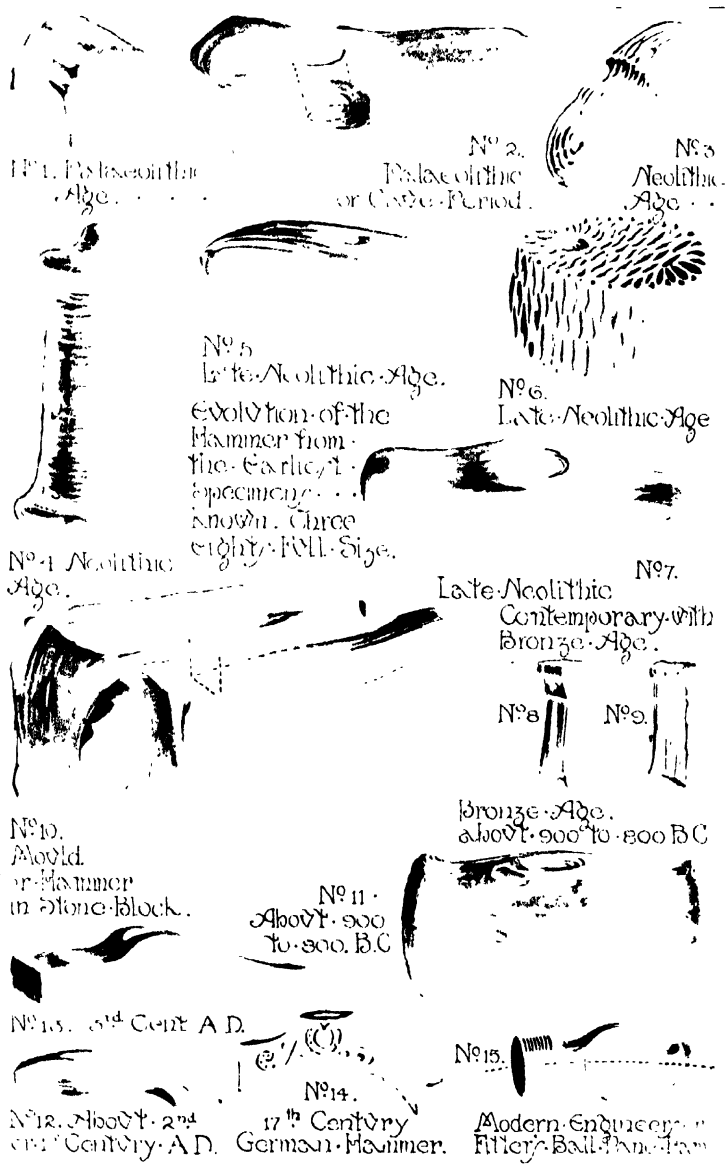 Nº 1. Palaeolithic
Age.
Nº 2.
Palaeolithic
or Cave Period.
Nº 3
Neolithic
Age
Nº 5
Late Neolithic Age.
Nº 6.
Late Neolithic Age
Evolution of the
Hammer from
the Earliest
Specimens
known. Three
eighths Full Size.
Nº 4 Neolithic
Age.
Nº 7.
Late Neolithic
Contemporary with
Bronze Age.
Nº 8
Nº 9.
Bronze Age.
about 900 to 800 B C
Nº 10.
Mould
or Hammer
in Stone Block.
Nº 11
About 900
to 800. B.C
Nº 13. 3rd Cent A D.
Nº 12. About 2nd
Century A D.
Nº 14.
17th Century
German Hammer.
Nº 15.
Modern Engineers
Fitters Ball Pane